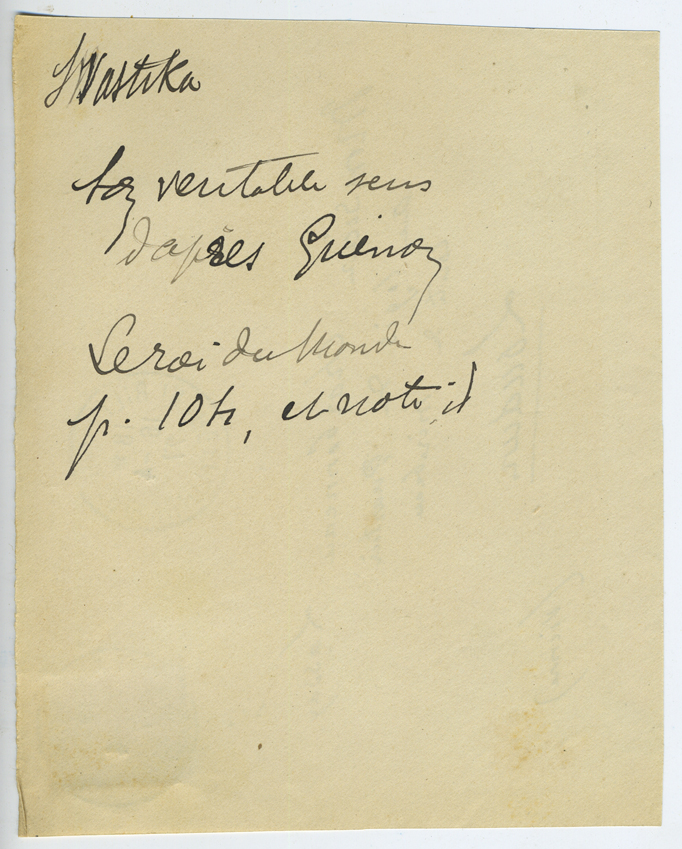 Swastika
Son veritable sens
d'après Guenon
Le roi du Monde
p. 104, et note id